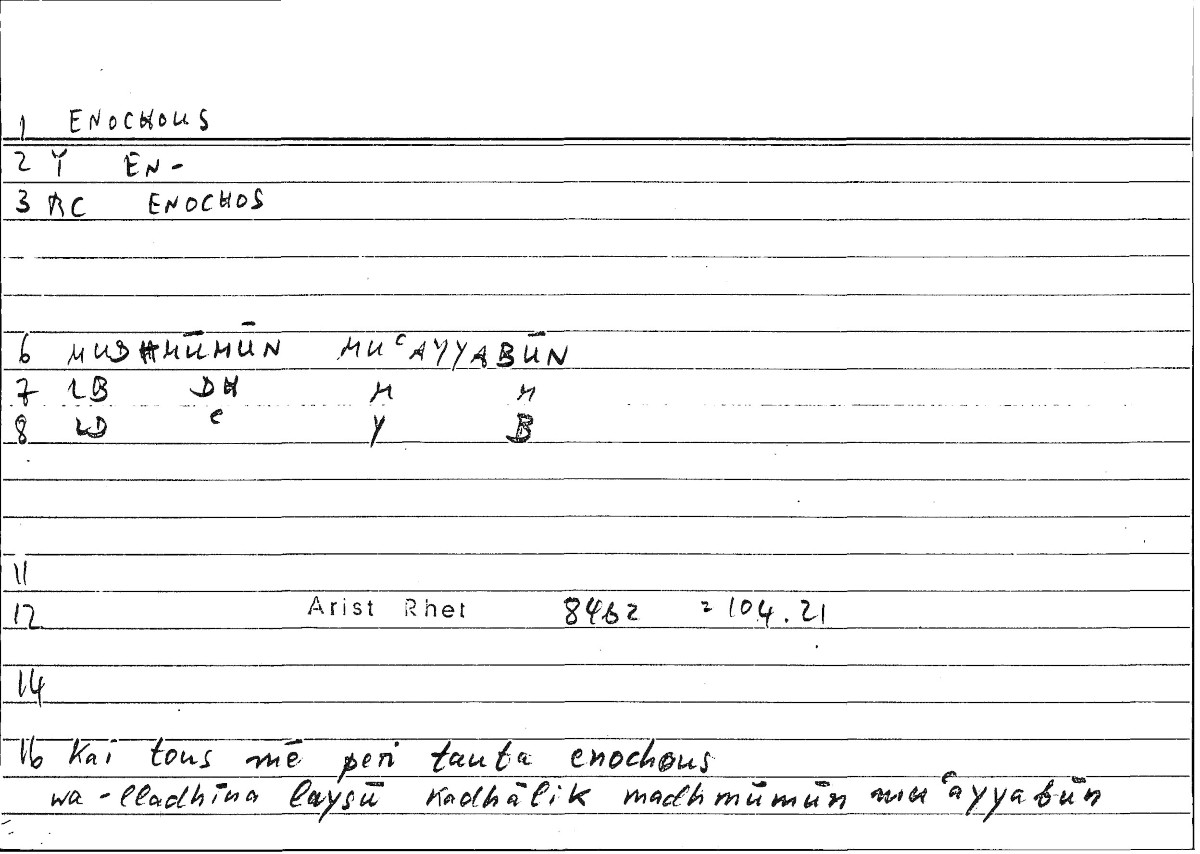 1 ENOCHOUS
2 Y EN-
3 RC ENOCHOS
6 MUDHMŪMŪN MUᶜAYYABŪN
7 LB DH M M
8 LD ᶜ Y B
11
12 Arist Rhet 84b2 =104.21
14
16 Kai tous mē peri tauta enochous
wa-lladhīna laysū kadhālik madhmūmūn muᶜayyabūn